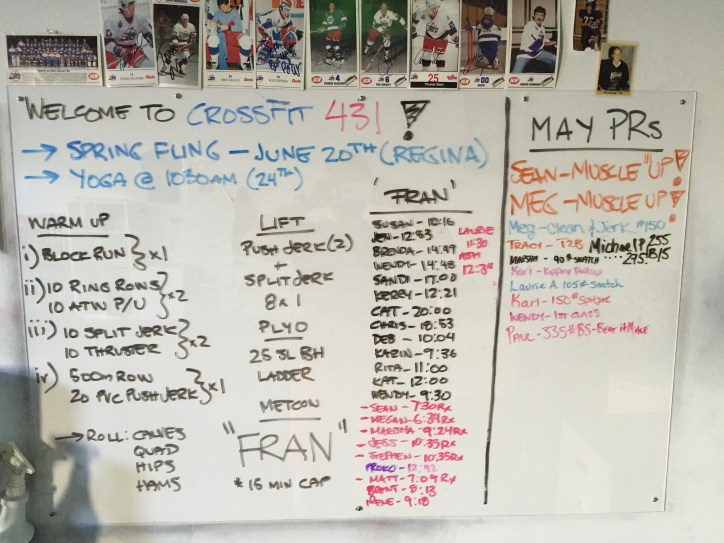 WELCOME TO CROSSFIT 431!
→ SPRING FLING - JUNE 20TH (REGINA)
→ YOGA @ 1030AM (24TH)
WARM UP
i) BLOCK RUN } x1
ii) 10 RING ROWS
10 ATW P/U } x2
iii) 10 SPLIT JERK
10 THRUSTER } x2
iv) 500m ROW
20 PVC PUSH JERK } x1
→ ROLL: CALVES
QUAD
HIPS
HAMS
LIFT
PUSH JERK (2)
+
SPLIT JERK
8 x 1
PLYO
25 SL BH
LADDER
METCON
"FRAN"
* 15 MIN CAP
"FRAN"
SUSAN - 10:16
JEN - 12:53
BRENDA - 14:49
WENDY - 14:48
SANDI - 17:00
KERRY - 12:21
CAT - 20:00
CHRIS - 18:53
DEB - 10:04
KARIN - 9:36
RITA - 11:00
KAT - 12:00
WENDY - 9:30
- SEAN - 7:30 Rx
- MEGAN - 6:34 Rx
- MARSHA - 9:24 Rx
- JESS - 10:35 Rx
- STEPHEN - 10:35 Rx
PROKO - 12:42
- MATT - 7:09 Rx
BRENT - 8:13
RENE - 9:18
LAURIE
11:30
ASH
MAY PRs
SEAN - MUSCLE UP!
MEG - MUSCLE UP!
Meg - Clean & Jerk #150
TRACY - T2B
Michael P 255
MARSHA - 90# SNATCH
275 B/S
Kari - Kipping Pullup
Laurie A. 105# Snatch
Karl - 150#
WENDY - 1ST CLASS
PAUL - 335# BS - Beat H Mike
4
6
25
00